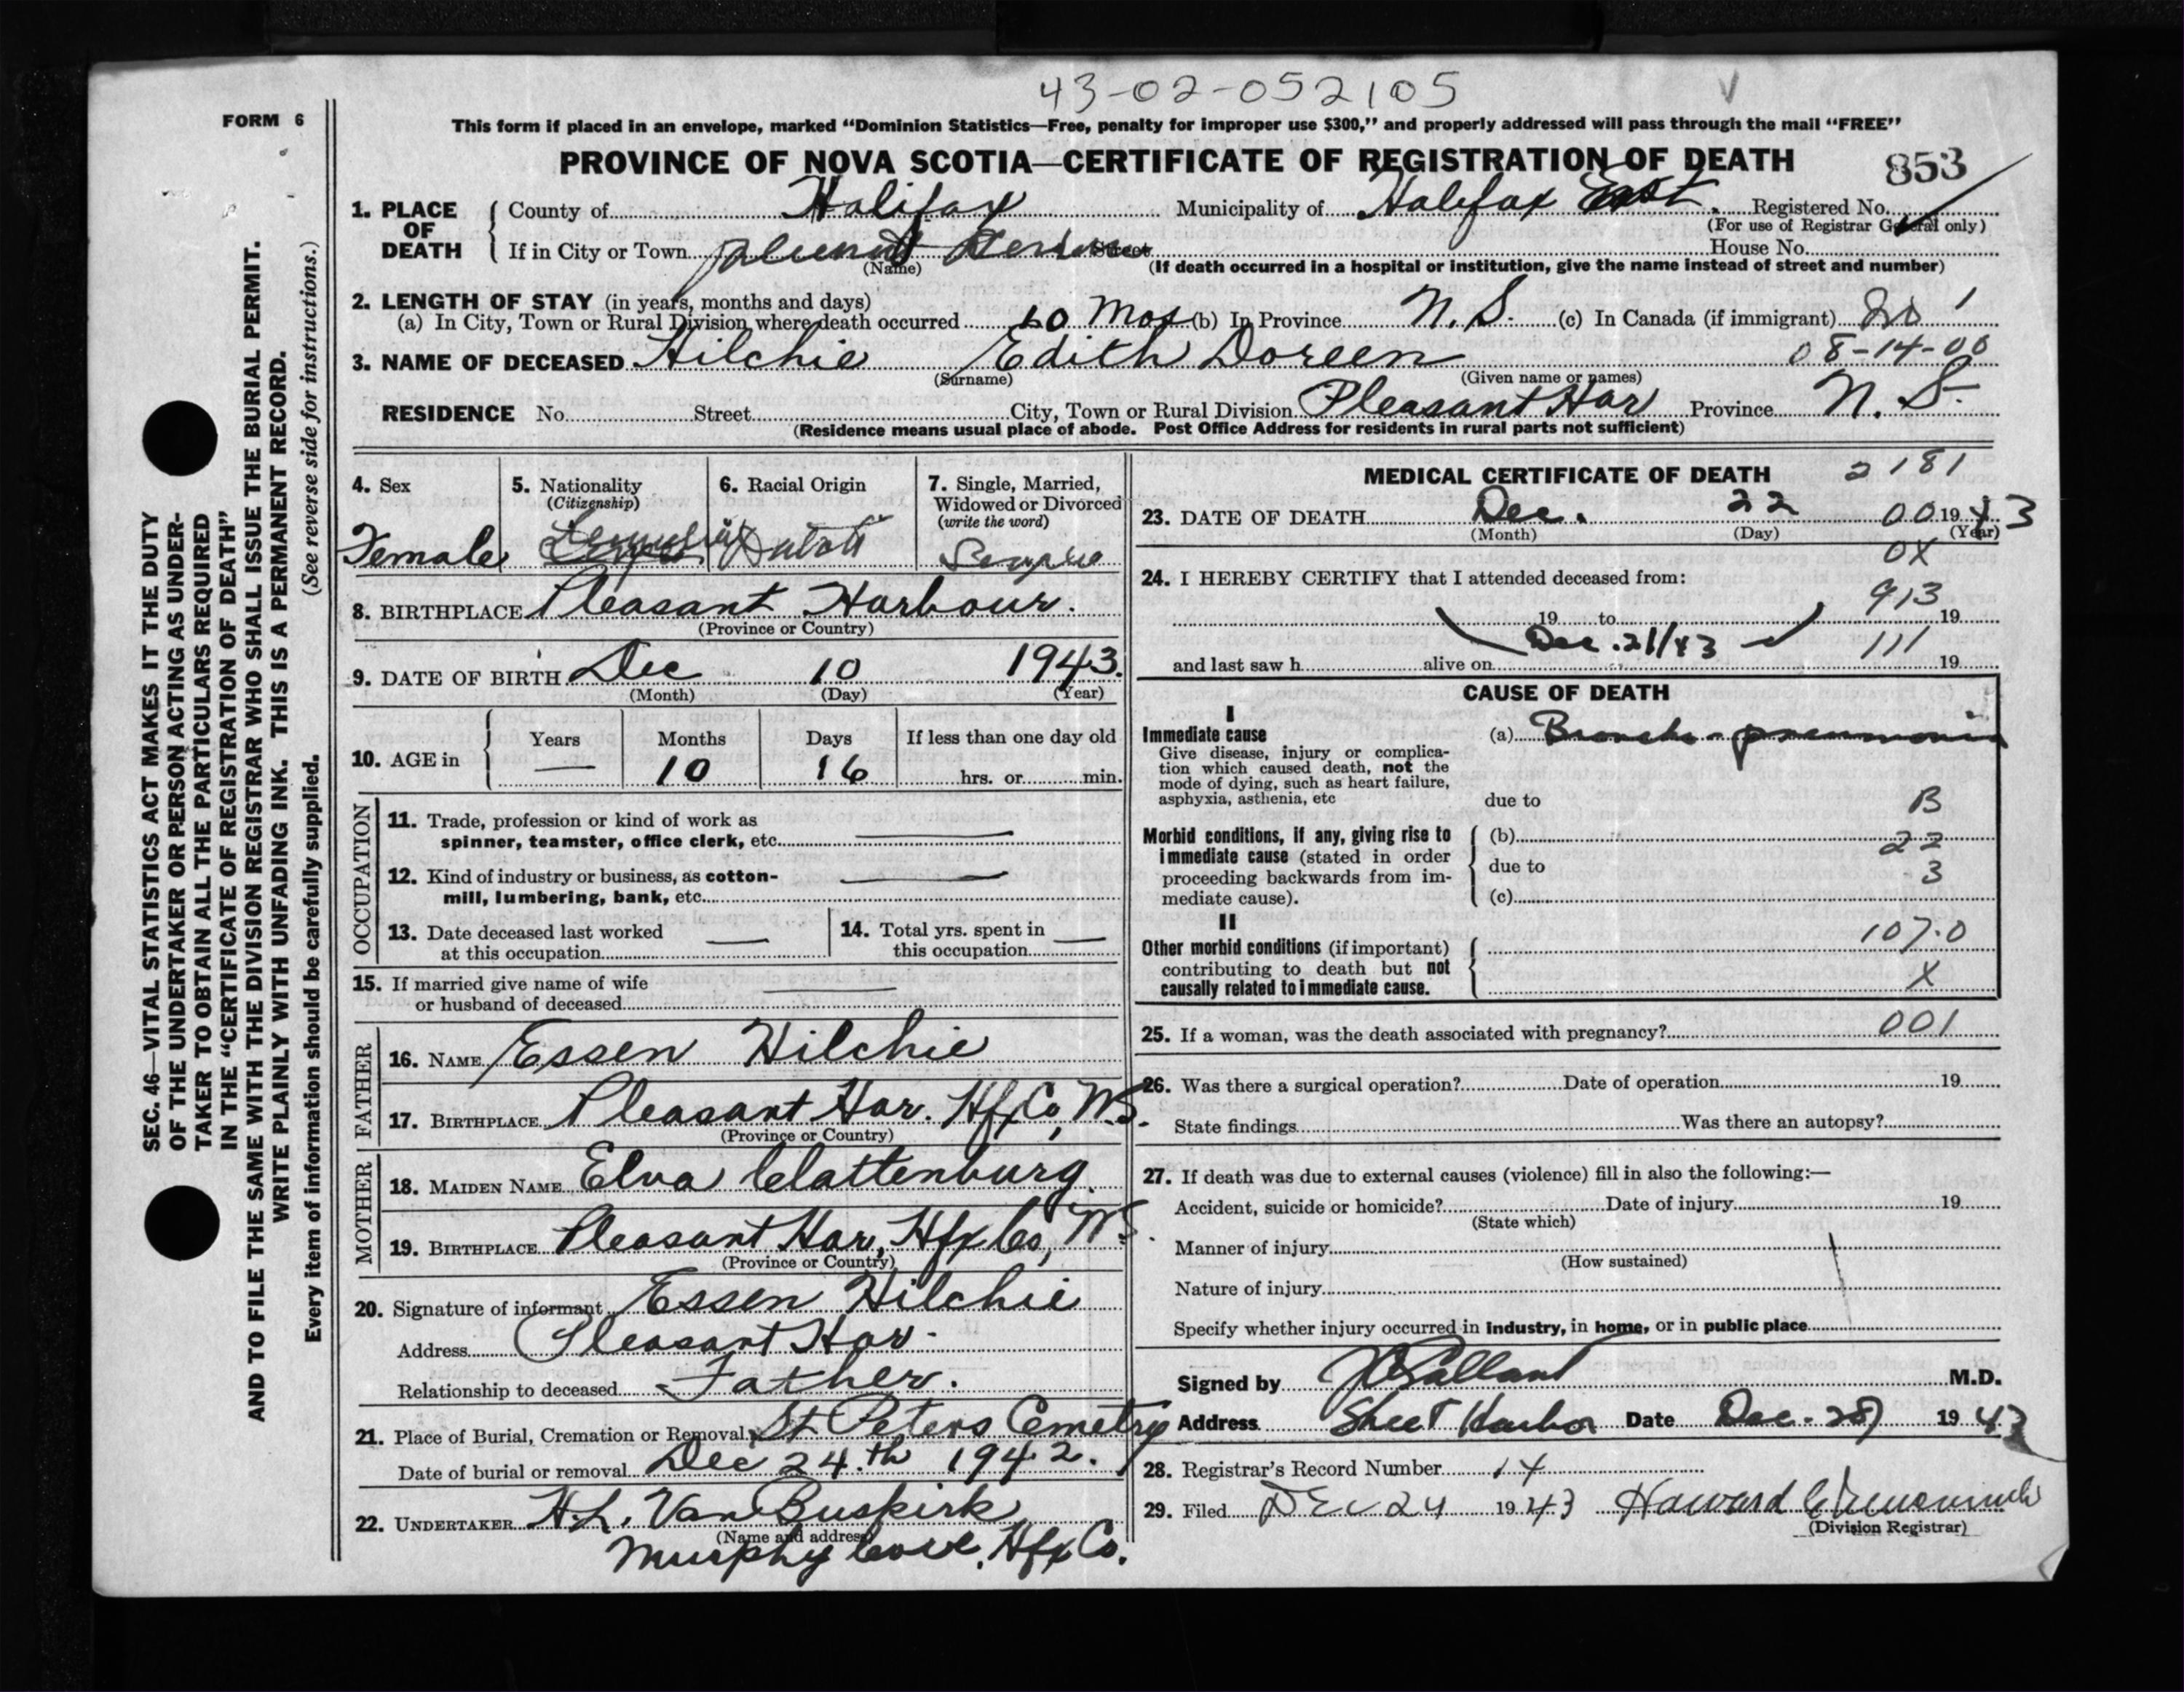 43-02-052105
FORM 6
This form if placed in an envelope, marked "Dominion Statistics—Free, penalty for improper use $300," and properly addressed will pass through the mail "FREE"
PROVINCE OF NOVA SCOTIA—CERTIFICATE OF REGISTRATION OF DEATH 853
1. PLACE OF DEATH County of Halifax Municipality of Halifax East Registered No.
(For use of Registrar General only)
If in City or Town Street House No.
(Name) (If death occurred in a hospital or institution, give the name instead of street and number)
2. LENGTH OF STAY (in years, months and days)
(a) In City, Town or Rural Division where death occurred 10 Mos (b) In Province N.S. (c) In Canada (if immigrant)
3. NAME OF DECEASED Hilchie Edith Doreen 08-14-00
(Surname) (Given name or names)
RESIDENCE No. Street City, Town or Rural Division Pleasant Har Province N.S.
(Residence means usual place of abode. Post Office Address for residents in rural parts not sufficient)
4. Sex 5. Nationality (Citizenship) 6. Racial Origin 7. Single, Married, Widowed or Divorced (write the word)
Female
8. BIRTHPLACE Pleasant Harbour.
(Province or Country)
9. DATE OF BIRTH Dec 10 1943.
(Month) (Day) (Year)
10. AGE in Years Months Days If less than one day old
— 10 16 hrs. or min.
OCCUPATION
11. Trade, profession or kind of work as spinner, teamster, office clerk, etc.
12. Kind of industry or business, as cotton-mill, lumbering, bank, etc.
13. Date deceased last worked at this occupation —
14. Total yrs. spent in this occupation —
15. If married give name of wife or husband of deceased
FATHER
16. NAME Essen Hilchie
17. BIRTHPLACE Pleasant Har. Hfx Co, N.S.
(Province or Country)
MOTHER
18. MAIDEN NAME Elva Clattenburg.
19. BIRTHPLACE Pleasant Har, Hfx Co, N.S.
(Province or Country)
20. Signature of informant Essen Hilchie
Address Pleasant Har.
Relationship to deceased Father.
21. Place of Burial, Cremation or Removal St Peters Cemetry
Date of burial or removal Dec 24.th 1942.
22. UNDERTAKER H.L. VanBuskirk
(Name and address)
Murphy Cove, Hfx Co.
MEDICAL CERTIFICATE OF DEATH 2181
23. DATE OF DEATH Dec. 22 00 1943
(Month) (Day) (Year)
0X
24. I HEREBY CERTIFY that I attended deceased from:
913
19 to 19
Dec. 21/43
and last saw h alive on 111 19
CAUSE OF DEATH
I
Immediate cause (a) Broncho-pneumonia
Give disease, injury or complication which caused death, not the mode of dying, such as heart failure, asphyxia, asthenia, etc
due to B
Morbid conditions, if any, giving rise to immediate cause (stated in order proceeding backwards from immediate cause).
(b) 22
due to 3
(c)
II
Other morbid conditions (if important) contributing to death but not causally related to immediate cause.
107.0
X
25. If a woman, was the death associated with pregnancy? 001
26. Was there a surgical operation? Date of operation 19
State findings Was there an autopsy?
27. If death was due to external causes (violence) fill in also the following:—
Accident, suicide or homicide? Date of injury 19
(State which)
Manner of injury
(How sustained)
Nature of injury
Specify whether injury occurred in industry, in home, or in public place
Signed by M.D.
Address Sheet Harbor Date Dec. 1943
28. Registrar's Record Number 14
29. Filed DEC 24 1943 Howard
(Division Registrar)
SEC. 46—VITAL STATISTICS ACT MAKES IT THE DUTY
OF THE UNDERTAKER OR PERSON ACTING AS UNDER-
TAKER TO OBTAIN ALL THE PARTICULARS REQUIRED
IN THE "CERTIFICATE OF REGISTRATION OF DEATH"
AND TO FILE THE SAME WITH THE DIVISION REGISTRAR WHO SHALL ISSUE THE BURIAL PERMIT.
WRITE PLAINLY WITH UNFADING INK. THIS IS A PERMANENT RECORD.
Every item of information should be carefully supplied. (See reverse side for instructions.)